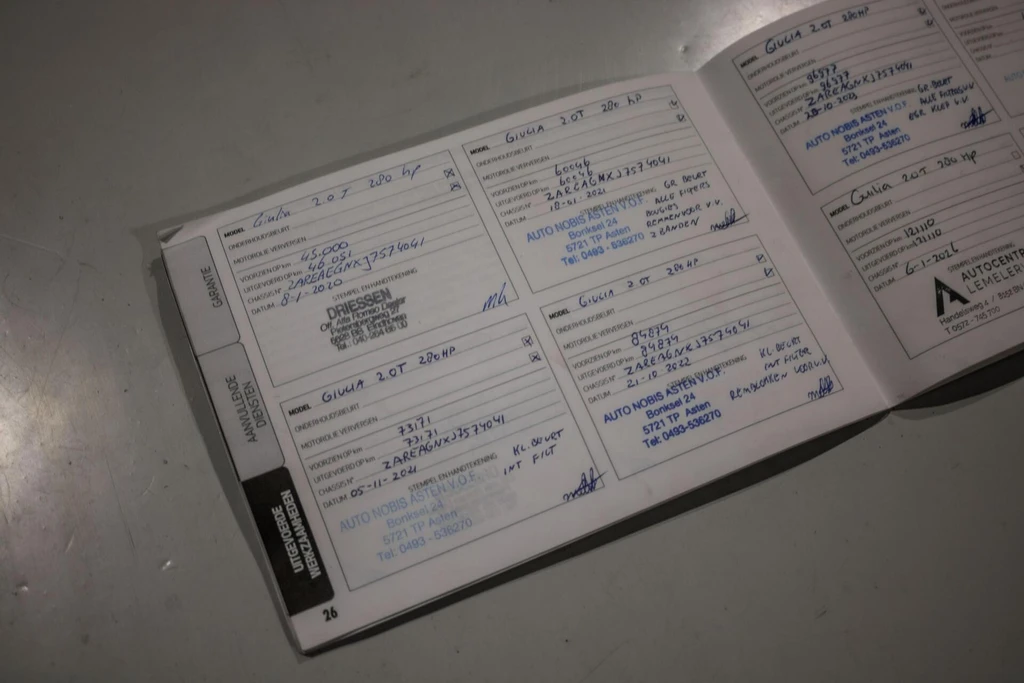 GARANTIE
AANVULLENDE
DIENSTEN
UITGEVOERDE
WERKZAAMHEDEN
MODEL Giulia 2.0T 280 HP
ONDERHOUDSBEURT
MOTOROLIE VERVERSEN
VOORZIEN OP km 45.000
UITGEVOERD OP km 46 051
CHASSIS Nº ZAREAEGNXJ7574041
DATUM 8-1-2020
STEMPEL EN HANDTEKENING
DRIESSEN
Off. Alfa Romeo Dealer
5628 BS Eindhoven
MODEL GIULIA 2.0T 280HP
ONDERHOUDSBEURT
MOTOROLIE VERVERSEN
VOORZIEN OP km 73171
UITGEVOERD OP km 73171
CHASSIS Nº ZAREAGNXJ7574041
DATUM 05-11-2021
STEMPEL EN HANDTEKENING
KL. BEURT
INT FILT
AUTO NOBIS ASTEN V.O.F.
Bonksel 24
5721 TP Asten
Tel: 0493-536270
26
MODEL GIULIA 2.0T 280 HP
ONDERHOUDSBEURT
MOTOROLIE VERVERSEN
VOORZIEN OP km 60046
UITGEVOERD OP km 60046
CHASSIS Nº ZAREAGNXJ7574041
DATUM 18-01-2021
STEMPEL EN HANDTEKENING
GR BEURT
ALLE FILTERS
BOUGIES
REMMEN VOOR V.V.
2 BANDEN
AUTO NOBIS ASTEN V.O.F.
Bonksel 24
5721 TP Asten
Tel: 0493-536270
MODEL GIULIA 2.0T 280HP
ONDERHOUDSBEURT
MOTOROLIE VERVERSEN
VOORZIEN OP km 84874
UITGEVOERD OP km 84874
CHASSIS Nº ZAREAGNXJ7574041
DATUM 21-10-2022
STEMPEL EN HANDTEKENING
KL BEURT
INT FILTER
REMBLOKKEN VOOR V.V.
AUTO NOBIS ASTEN V.O.F.
Bonksel 24
5721 TP Asten
Tel: 0493-536270
MODEL GIULIA 2.0T 280HP
ONDERHOUDSBEURT
MOTOROLIE VERVERSEN
VOORZIEN OP km 96377
UITGEVOERD OP km 96377
CHASSIS Nº ZAREAGNXJ7574041
DATUM 20-10-2023
STEMPEL EN HANDTEKENING
GR BEURT
AUTO NOBIS ASTEN V.O.F.
Bonksel 24
5721 TP Asten
Tel: 0493-536270
MODEL Giulia 2.0T 280 HP
ONDERHOUDSBEURT
MOTOROLIE VERVERSEN
VOORZIEN OP km 121110
UITGEVOERD OP km 121110
CHASSIS Nº
DATUM 6-1-2026
STEMPEL EN HANDTEKENING
AUTOCENTR
LEMELER
Handelsweg 4
T 0572 - 745 700